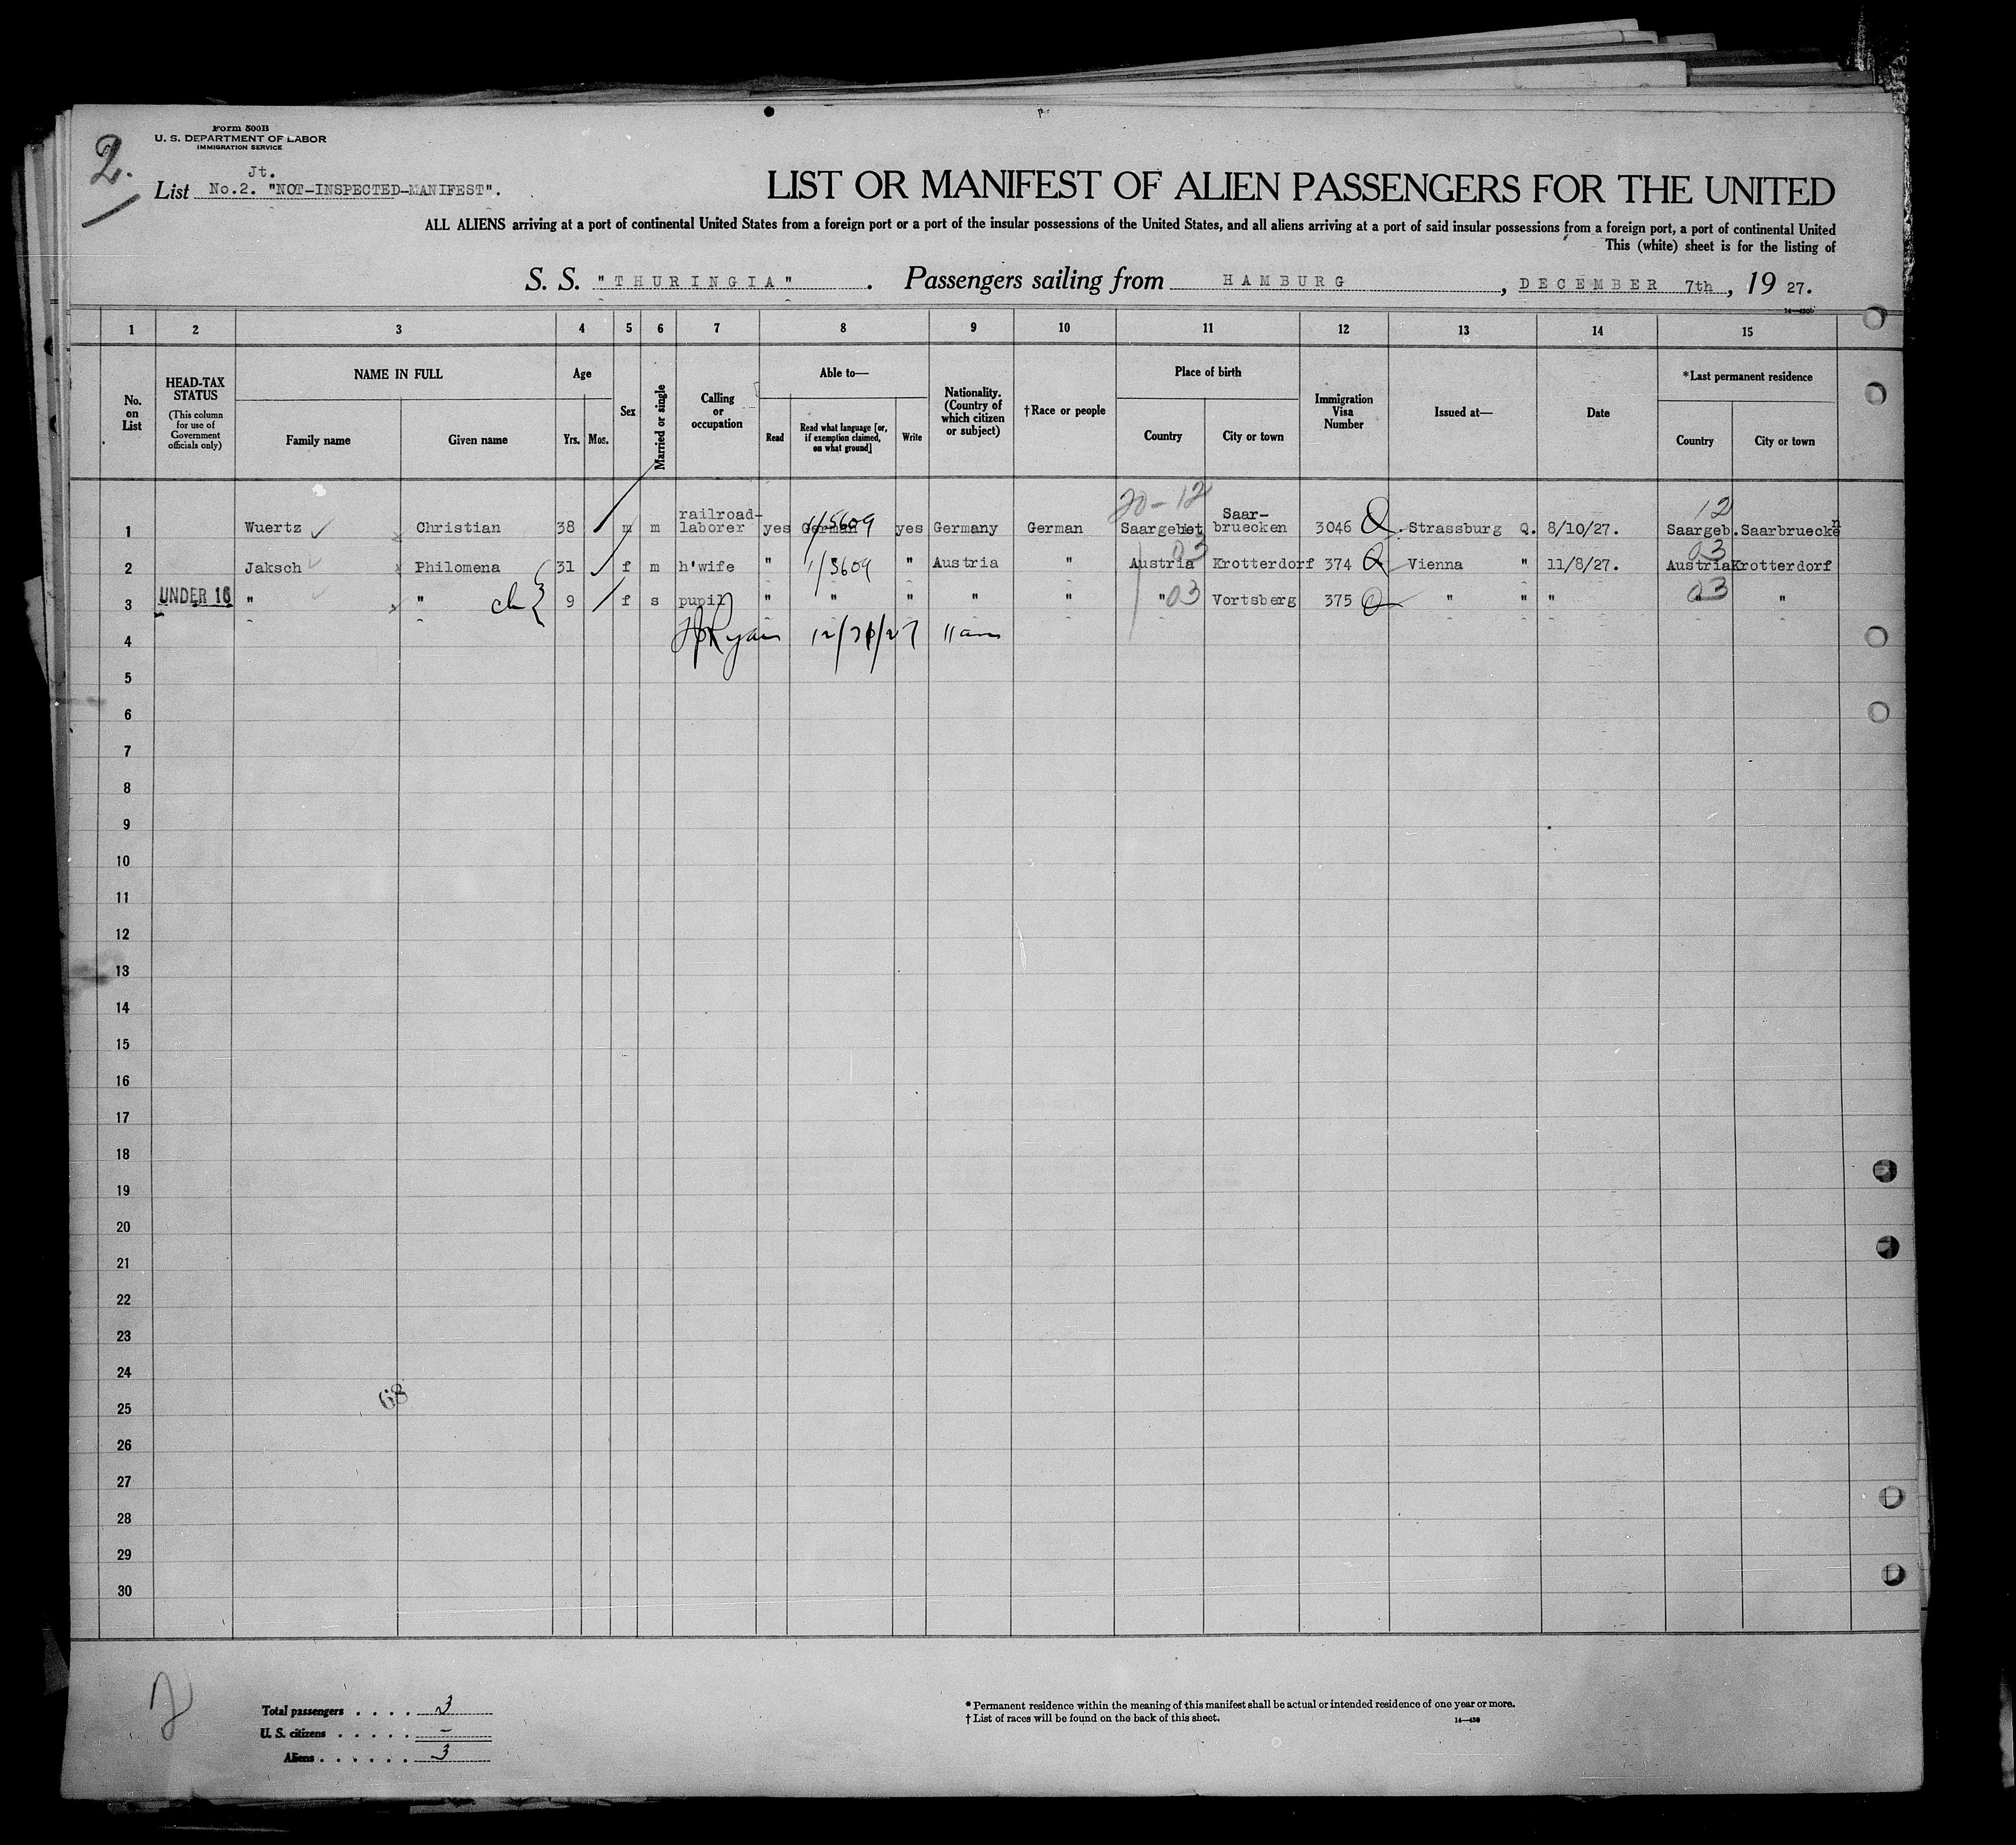 2.
Form 500B
U. S. DEPARTMENT OF LABOR
IMMIGRATION SERVICE
Jt.
List No.2. "NOT-INSPECTED-MANIFEST".
LIST OR MANIFEST OF ALIEN PASSENGERS FOR THE UNITED
ALL ALIENS arriving at a port of continental United States from a foreign port or a port of the insular possessions of the United States, and all aliens arriving at a port of said insular possessions from a foreign port, a port of continental United
This (white) sheet is for the listing of
S. S. "THURINGIA" . Passengers sailing from HAMBURG , DECEMBER 7th , 19 27.
1 2 3 4 5 6 7 8 9 10 11 12 13 14 15
No. on List
HEAD-TAX STATUS (This column for use of Government officials only)
NAME IN FULL
Family name Given name
Age
Yrs. Mos.
Sex
Married or single
Calling or occupation
Able to—
Read
Read what language [or, if exemption claimed, on what ground]
Write
Nationality. (Country of which citizen or subject)
†Race or people
Place of birth
Country City or town
Immigration Visa Number
Issued at—
Date
*Last permanent residence
Country City or town
20-12 12
1 Wuertz Christian 38 m m railroad-laborer yes German 1/5609 yes Germany German Saargebiet Saar-bruecken 3046 Q Strassburg Q. 8/10/27. Saargeb. Saarbruecken
03 03
2 Jaksch Philomena 31 f m h'wife " 1/5609 " Austria " Austria Krotterdorf 374 Q Vienna " 11/8/27. Austria Krotterdorf
3 UNDER 16 " " ch 9 f s pupil " " " " " " 03 Vortsberg 375 Q " " " 03 " "
4 Ryan 12/21/27 11am
5
6
7
8
9
10
11
12
13
14
15
16
17
18
19
20
21
22
23
24
68
25
26
27
28
29
30
Total passengers . . . . 3
U. S. citizens . . . . . –
Aliens . . . . . . 3
* Permanent residence within the meaning of this manifest shall be actual or intended residence of one year or more.
† List of races will be found on the back of this sheet.
14—430